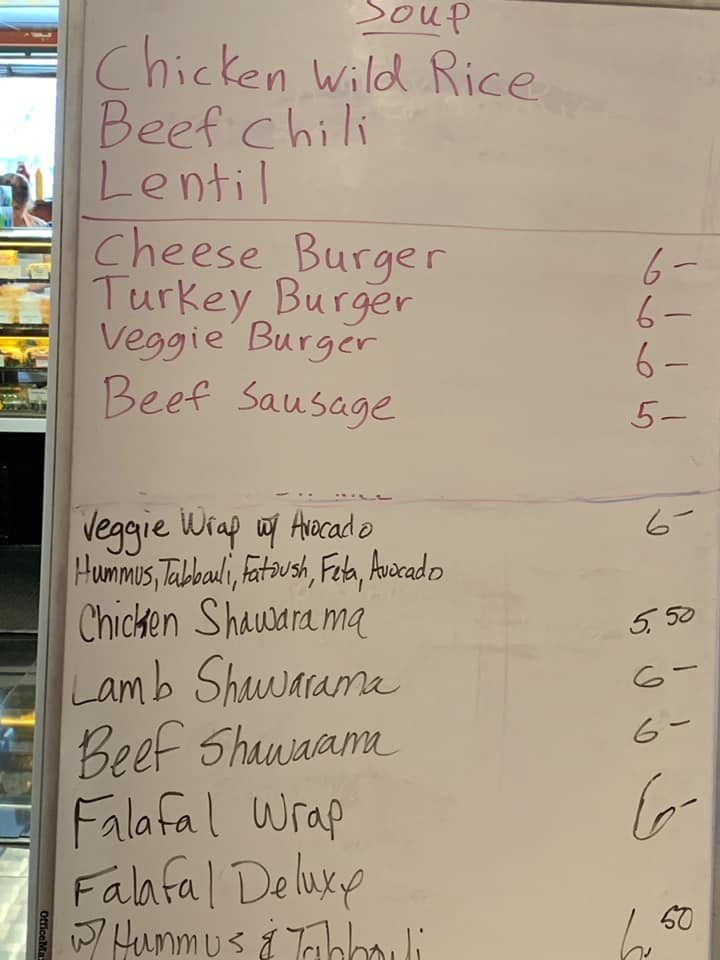 Soup
Chicken Wild Rice
Beef Chili
Lentil
Cheese Burger 6-
Turkey Burger 6-
Veggie Burger 6-
Beef Sausage 5-
Veggie Wrap w/ Avocado 6-
Hummus, Tabbouli, Fatoush, Feta, Avocado
Chicken Shawarama 5.50
Lamb Shawarama 6-
Beef Shawarama 6-
Falafal Wrap 6-
Falafal Deluxe
w/ Hummus & Tabbouli 6.50
OfficeMa